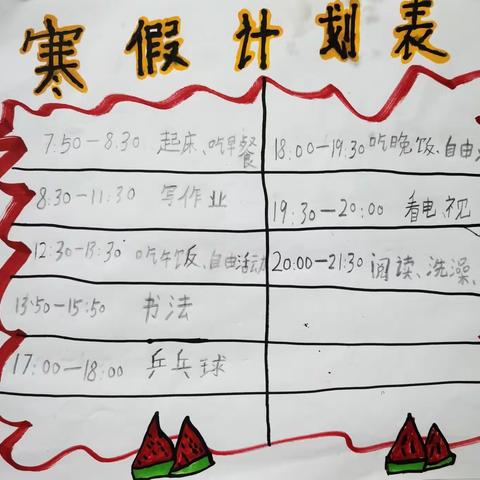 寒假计划表
7:50—8:30 起床、吃早餐
8:30—11:30 写作业
12:30—13:30 吃午饭、自由活动
13:50—15:50 书法
17:00—18:00 乒乓球
18:00—19:30 吃晚饭、自由
19:30—20:00 看电视
20:00—21:30 阅读、洗澡、